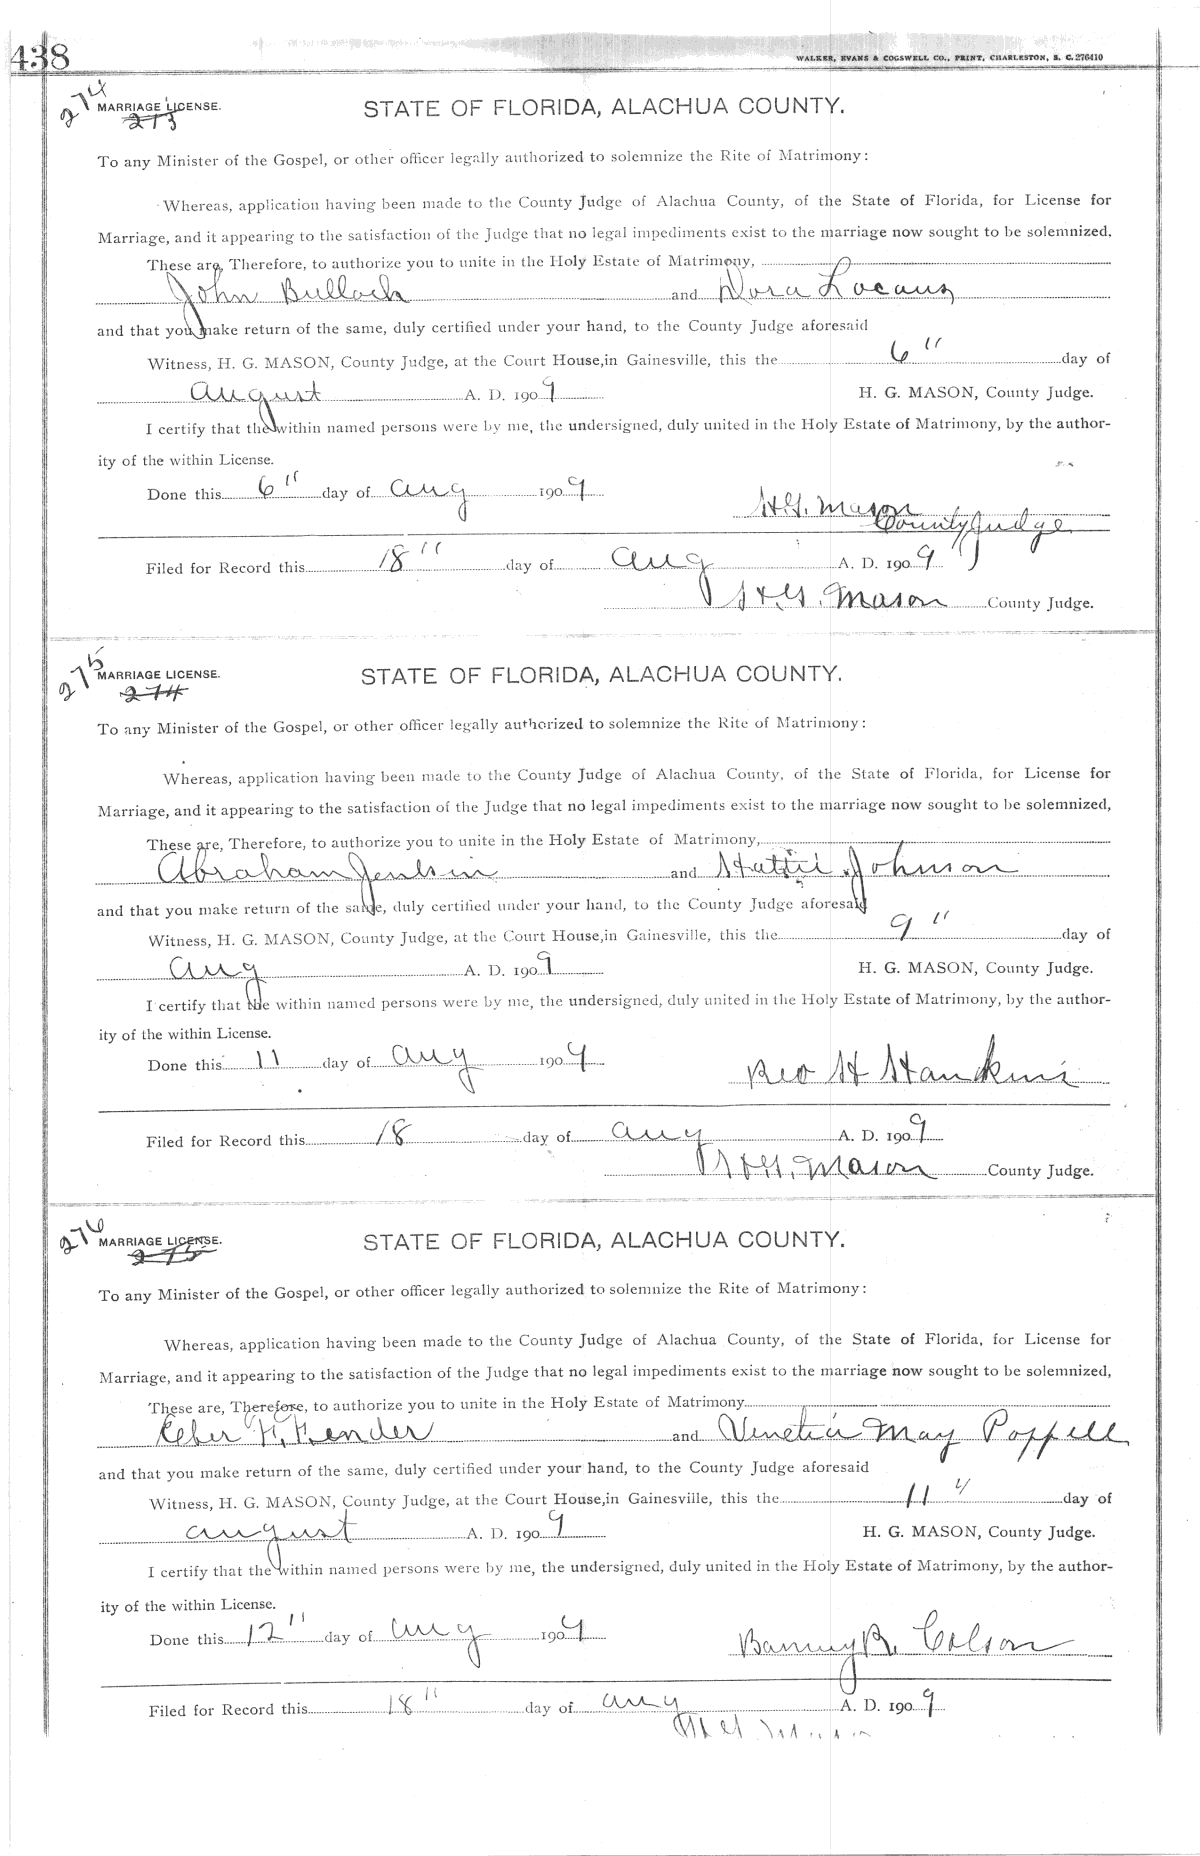 438
WALKER, EVANS & COGSWELL CO., PRINT, CHARLESTON, S. C. 276410
274
MARRIAGE LICENSE.
273
STATE OF FLORIDA, ALACHUA COUNTY.
To any Minister of the Gospel, or other officer legally authorized to solemnize the Rite of Matrimony:
Whereas, application having been made to the County Judge of Alachua County, of the State of Florida, for License for
Marriage, and it appearing to the satisfaction of the Judge that no legal impediments exist to the marriage now sought to be solemnized.
These are, Therefore, to authorize you to unite in the Holy Estate of Matrimony,
John Bullock and Dora Locaus
and that you make return of the same, duly certified under your hand, to the County Judge aforesaid
Witness, H. G. MASON, County Judge, at the Court House, in Gainesville, this the 6" day of
August A. D. 1909 H. G. MASON, County Judge.
I certify that the within named persons were by me, the undersigned, duly united in the Holy Estate of Matrimony, by the author-
ity of the within License.
Done this 6" day of Aug 1909 H.G. Mason
County Judge
Filed for Record this 18" day of Aug A. D. 1909
H.G. Mason County Judge.
275
MARRIAGE LICENSE.
274
STATE OF FLORIDA, ALACHUA COUNTY.
To any Minister of the Gospel, or other officer legally authorized to solemnize the Rite of Matrimony:
Whereas, application having been made to the County Judge of Alachua County, of the State of Florida, for License for
Marriage, and it appearing to the satisfaction of the Judge that no legal impediments exist to the marriage now sought to be solemnized,
These are, Therefore, to authorize you to unite in the Holy Estate of Matrimony,
Abraham Jenkin and Hattie Johnson
and that you make return of the same, duly certified under your hand, to the County Judge aforesaid
Witness, H. G. MASON, County Judge, at the Court House, in Gainesville, this the 9" day of
Aug A. D. 1909 H. G. MASON, County Judge.
I certify that the within named persons were by me, the undersigned, duly united in the Holy Estate of Matrimony, by the author-
ity of the within License.
Done this 11 day of Aug 1909 Rev H Hankins
Filed for Record this 18 day of Aug A. D. 1909
H.G. Mason County Judge.
276
MARRIAGE LICENSE.
275
STATE OF FLORIDA, ALACHUA COUNTY.
To any Minister of the Gospel, or other officer legally authorized to solemnize the Rite of Matrimony:
Whereas, application having been made to the County Judge of Alachua County, of the State of Florida, for License for
Marriage, and it appearing to the satisfaction of the Judge that no legal impediments exist to the marriage now sought to be solemnized,
These are, Therefore, to authorize you to unite in the Holy Estate of Matrimony
Heber H. Fender and Venetia May Poppell
and that you make return of the same, duly certified under your hand, to the County Judge aforesaid
Witness, H. G. MASON, County Judge, at the Court House, in Gainesville, this the 11" day of
August A. D. 1909 H. G. MASON, County Judge.
I certify that the within named persons were by me, the undersigned, duly united in the Holy Estate of Matrimony, by the author-
ity of the within License.
Done this 12" day of Aug 1909 Barney R. Colson
Filed for Record this 18" day of Aug A. D. 1909